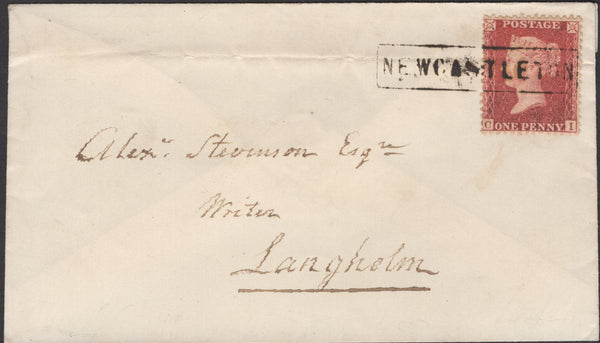 POSTAGE
NEWCASTLETON
C ONE PENNY I
Alexr. Stevenson Esqre
Writer
Langholm